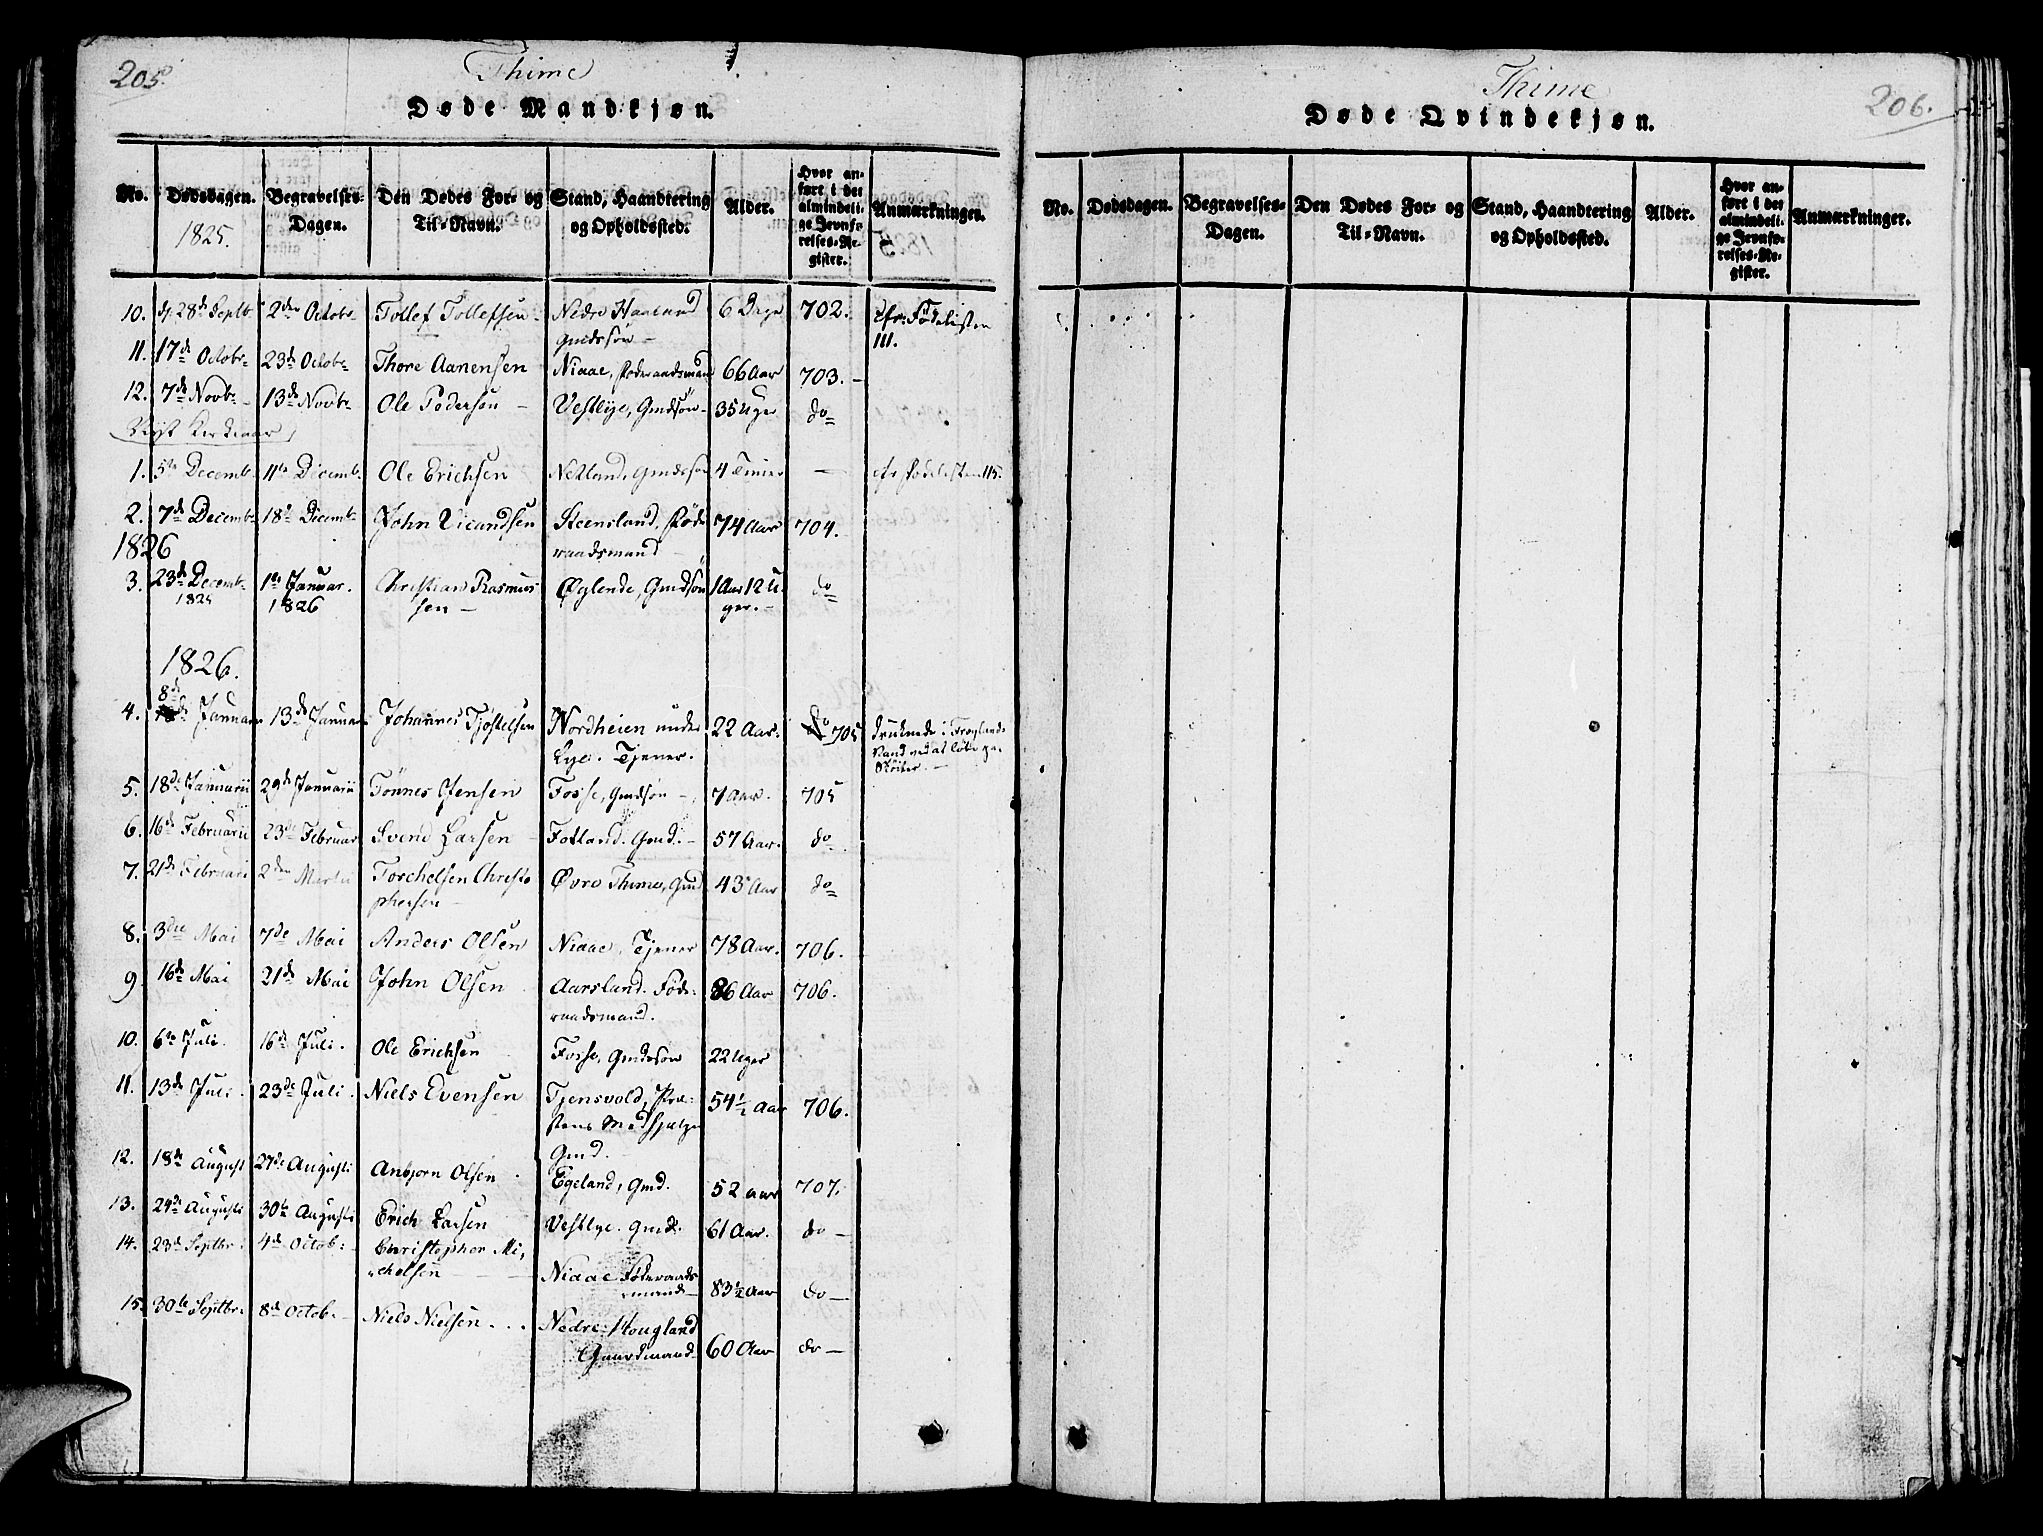 205.
Thime
Døde Mandkjøn.
No. Dødsdagen. Begravelses-Dagen. Den Dødes For- og Til-Navn. Stand, Haandtering og Opholdssted. Alder. Hvor anført i det almindelige Jevnførelses-Register. Anmærkninger.
1825.
10. d. 28de Septbr 2den Octobr Tollef Tollefsen Nedre Haaland 6 Dage 702. cfr: Fødelisten
gmdssøn 111.
11. 17de Octobr 23de Octobr Thore Aanensen Niaae, Føderaadsmand 66 Aar 703.
12. 7de Novbr 13de Novbr Ole Pedersen Vestlye, Gmdsøn 35 Uger do
Nyt Kirkeaar
1. 5te Decemb. 11te Decemb. Ole Erichsen Netland, Gmdssøn 4 Timer — cfr Fødelisten 115.
2. 7de Decembr 18de Decembr John Vicandsen Steensland, Føde- 74 Aar 704.
raadsmand
1826
3. 23de Decembr 1ste Januar. Christian Rasmus- Øglende, Gmdsøn 1 Aar 12 U- do
1825 1826 sen ger.
1826.
8de
4. Januar 13de Januar Johannes Tjøstelsen Nordheien under 22 Aar. do 705 druknede i Frøylands
Lye. Tjener. Vand ved at løbe paa
Skøiter.
5. 18de Januarii 29de Januarii Tønnes Ifensen Fosse, Gmdsøn 7 Aar. 705
6. 16de Februarii 23de Februar Svend Larsen Fotland. Gmd. 57 Aar. do
7. 21de Februari 2den Martii Torchelsen Christo- Øvre Thime, Gmd 43 Aar do
phersen
8. 3die Mai 7de Mai Anders Olsen Niaae, Tjener 78 Aar. 706.
9 16de Mai 21de Mai John Olsen Aarsland. Føde- 86 Aar 706.
raadsmand.
10. 6te Juli. 16de Juli. Ole Erichsen Fosse, Gmdssøn 22 Uger
11. 13de Juli. 23de Juli. Niels Evensen Tjensvold, Præ- 54 1/2 Aar 706.
stens Medhjælper
Gmd.
12. 18de August 27de Augusti Anbjørn Olsen Egeland, Gmd. 52 Aar 707.
13. 24de Augusti 30te Augusti Erich Larsen Vestlye. Gmd. 61 Aar. do
14. 23de Septbr. 4de Octob: Christopher Mi-
chelsen Niaae Føderaads- 83 1/2 Aar do
mand
15. 30te Septbr. 8de Octob. Niels Nielsen Nedre Hougland
Gaardmand 60 Aar do
206.
Thime
Døde Qvindekjøn.
No. Dødsdagen. Begravelses-Dagen. Den Dødes For- og Til-Navn. Stand, Haandtering og Opholdssted. Alder. Hvor anført i det almindelige Jevnførelses-Register. Anmærkninger.